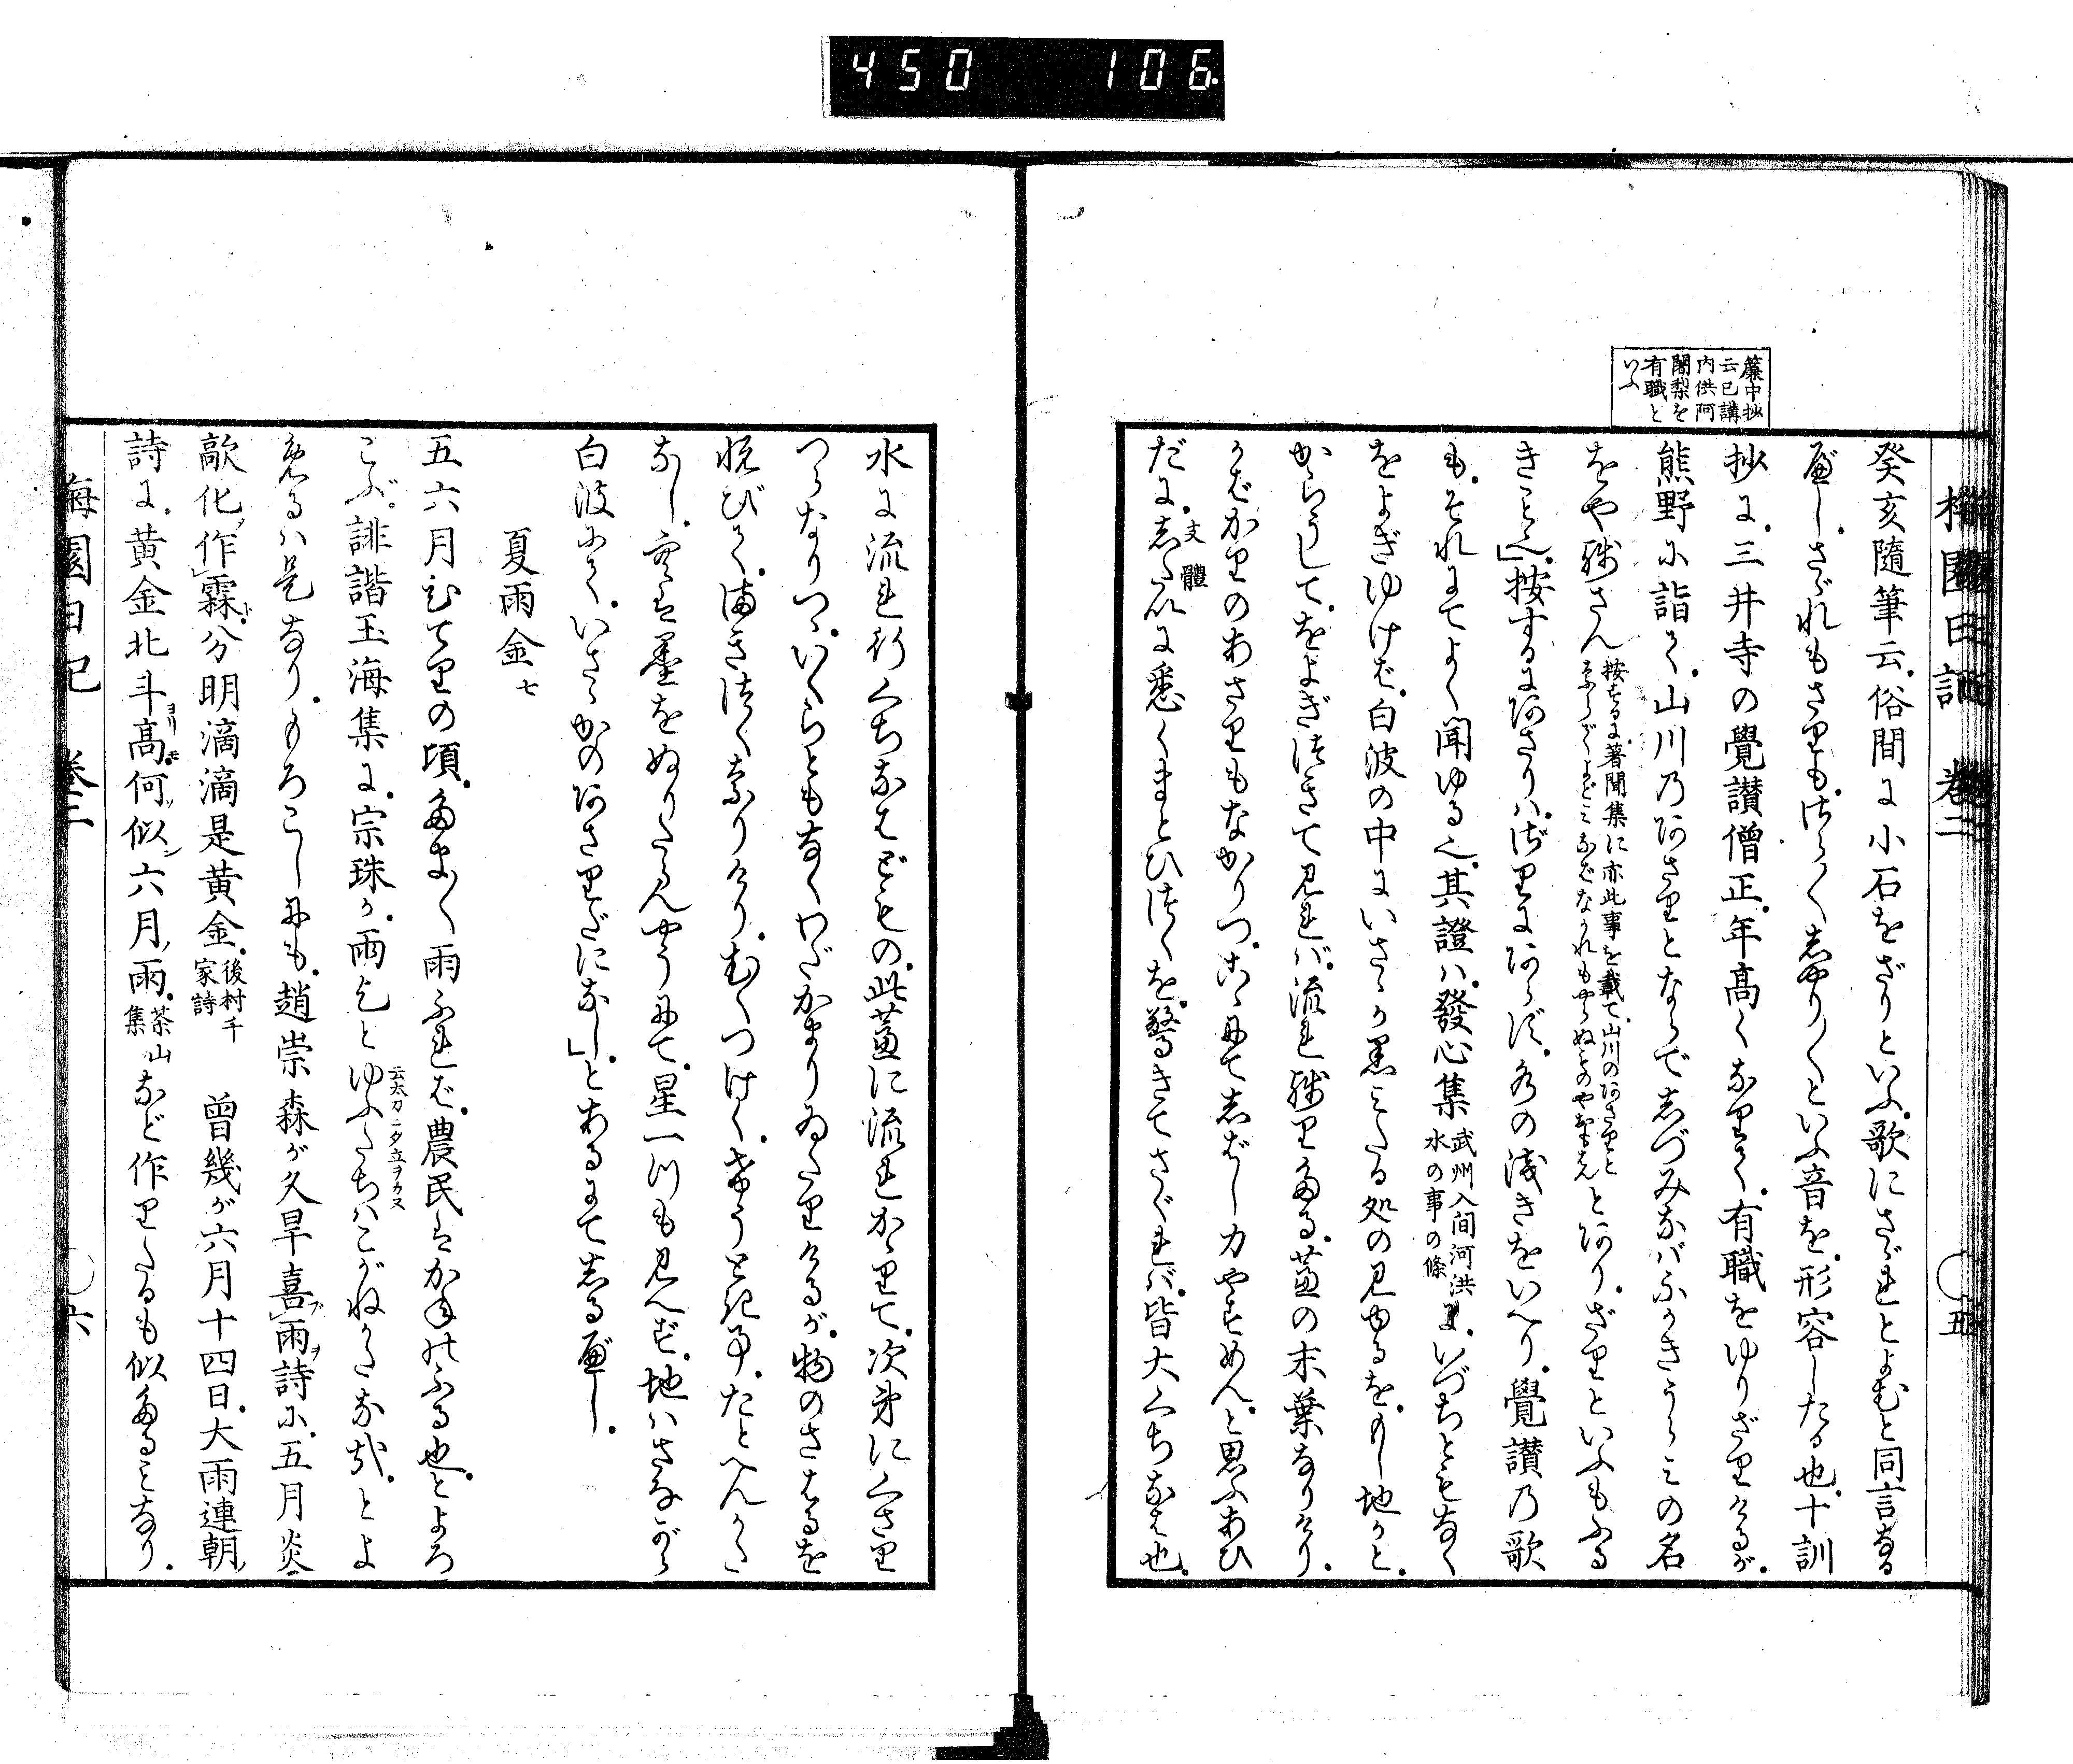 450 106
簾中抄
云已講
内供阿
闍梨を
有職と
いふ
梅園日記 巻二 五
癸亥隨筆云。俗間に小石をざりといふ。歌にさゞれとよむと同言なる
べし。さゞれもさりも。
抄に。三井寺の覺讃僧正。年高くなりて。有職をゆりざりけるが。
熊野に詣て。山川のあさりとならでしづみなバふかきうらみの名
をや殘さん 按ずるに著聞集に亦此事を載て。山川のあさりと
ならでよどみなばながれもやらぬものやおもはん とあり。ざりといふもふる
きこと也」按するにあさりハ。ざりにあらず。水の浅きをいへり。覺讃の歌
も。それにてよく聞ゆる也。其證ハ。發心集 武州入间河洪
水の事の條 に。いづちともなく
をよぎゆけば。白波の中にいさゝか黒みたる処の見ゆるを。もし地かと。
からうして。をよぎつきて見れバ。流れ殘りたる。蘆の末葉なりけり。
かばかりのあさりもなかりつ。こゝにてしばし力やすめん。と思ふあひ
だに。支體 したゐに悉くまとひつくを。驚きてさぐれバ。皆大くちなは也。
水に流れ行くちなはどもの。此蘆に流れかゝりて。次第にくさり
つらなりつゝ。いくらともなくわだかまりゐたりけるが。物のさはるを
悦びて。まきつくなりけり。むくつけく。けうとき事。たとへんかた
なし。空は墨をぬりたらんやうにて。星一つも見へず。地ハさながら
白波にて。いさゝかのあさりだになし」。とあるにて志る べし。
夏雨金 七
五六月ひでりの頃。たま〳〵雨ふれば。農民はかねのふる也。とよろ
こぶ。誹諧玉海集に。宗珠が。雨乞と 云太刀ニ夕立ヲカヌ ゆふたちハこがねかたな哉。とよ
めるハ是なり。もろこしにも。趙崇森が久旱喜雨詩に。五月炎
歊化作霖。分明滴滴是黄金。後村千
家詩 曾幾が六月十四日。大雨連朝
詩に。黄金北斗高 ヨリモ 何似六月雨。茶山
集 など作りたるも似たることなり。
梅園日記 卷二 六